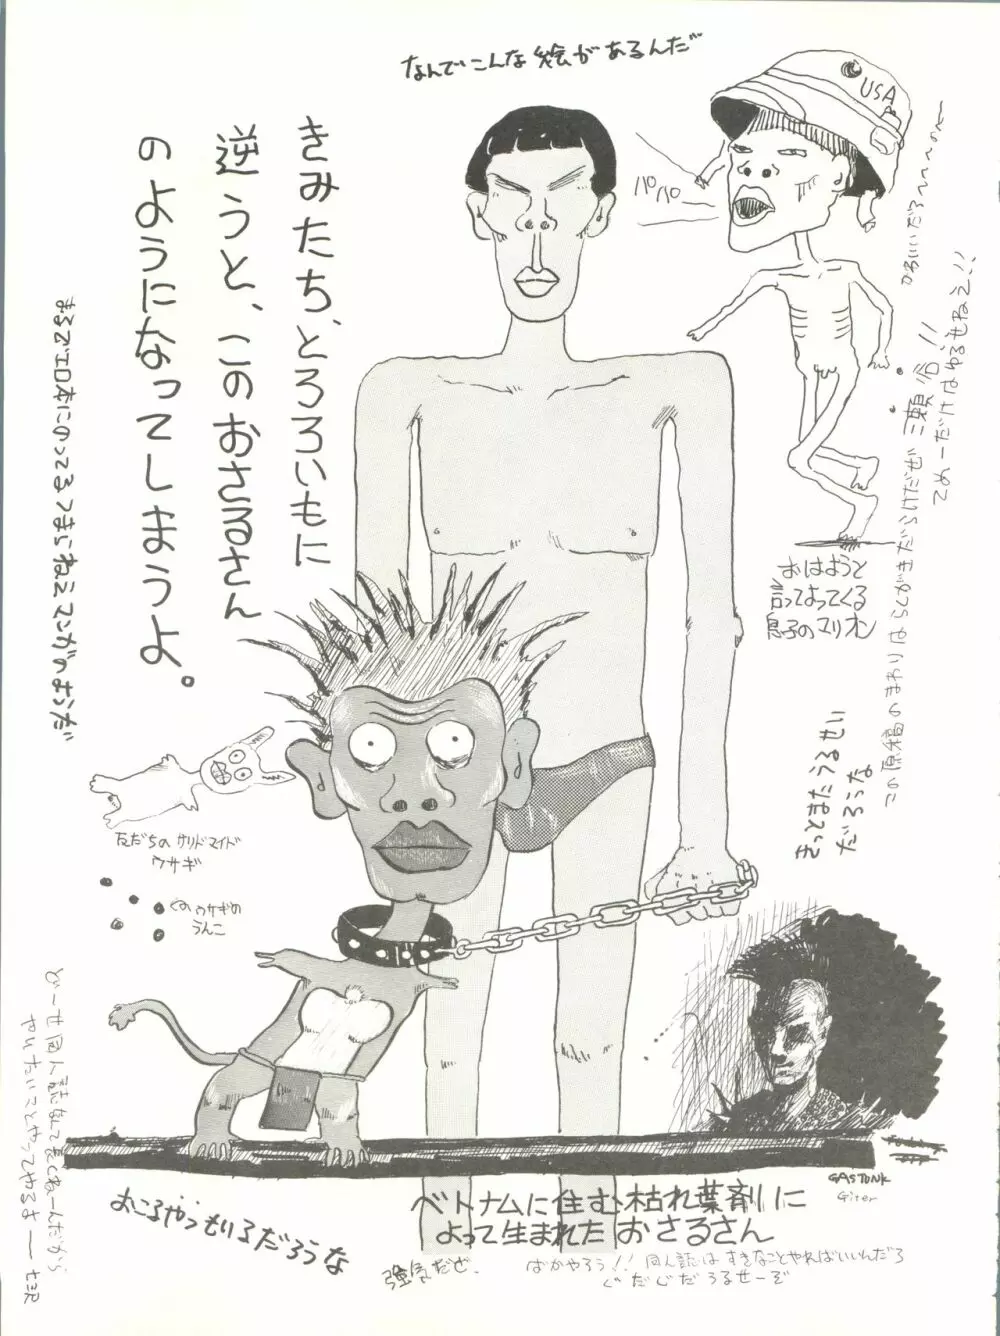 なんでこんな絵があるんだ
USA
パパパ
きみたち、とろろいもに
逆うと、このおさるさん
のようになってしまうよ。
まるでエロ本にのってるつまらねえマンガのようだ
かわいいだろへへへの
てめーだけはゆるせねえ!!
この原稿のまわりはらくがきだらけだぜ 三瀬省!!
おはようと
言ってよってくる
息子のマリオン
きっとまたうるせい
だろうな
友だちの サリドマイド
ウサギ
そのウサギの
うんこ
どーせ同人誌なんてまともねーんだから
やりたいことやってやるさ ―
GASTUNK
Giter
おこるやつもいるだろうな
ベトナムに住む枯れ葉剤に
よって生まれた おさるさん
強気だぜ。
ばかやろう!! 同人誌は すきなことやればいいんだろ
ぐだぐだうるせーぞ